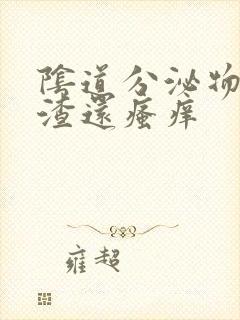 陰道分泌物
渣還瘙痒
雍超